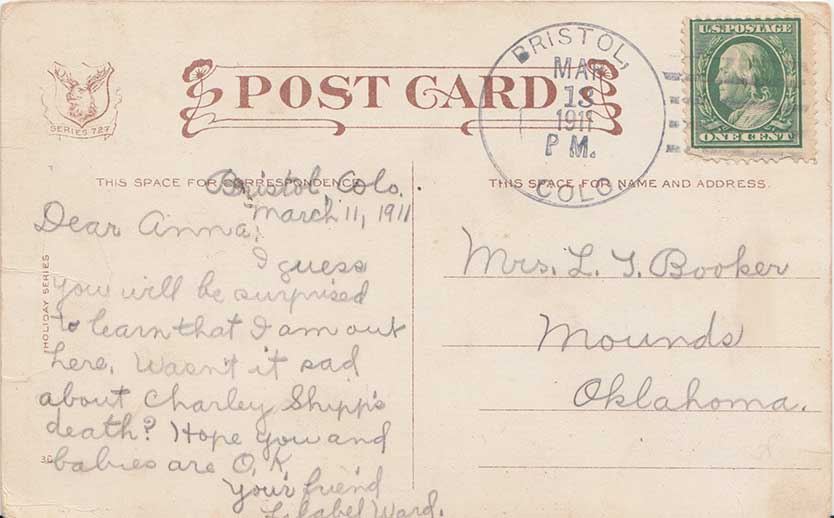 U.S. POSTAGE
ONE CENT
BRISTOL,
MAR
13
1911
P M.
COLO.
POST CARD
SERIES 727
THIS SPACE FOR CORRESPONDENCE
THIS SPACE FOR NAME AND ADDRESS
HOLIDAY SERIES
Bristol, Colo.
March 11, 1911
Dear Anna,
I guess
you will be surprised
to learn that I am out
here. Wasn't it sad
about Charley Shipp's
death? Hope you and
babies are O.K.
Your friend
Ward.
Mrs. L. T. Booker
Mounds
Oklahoma.